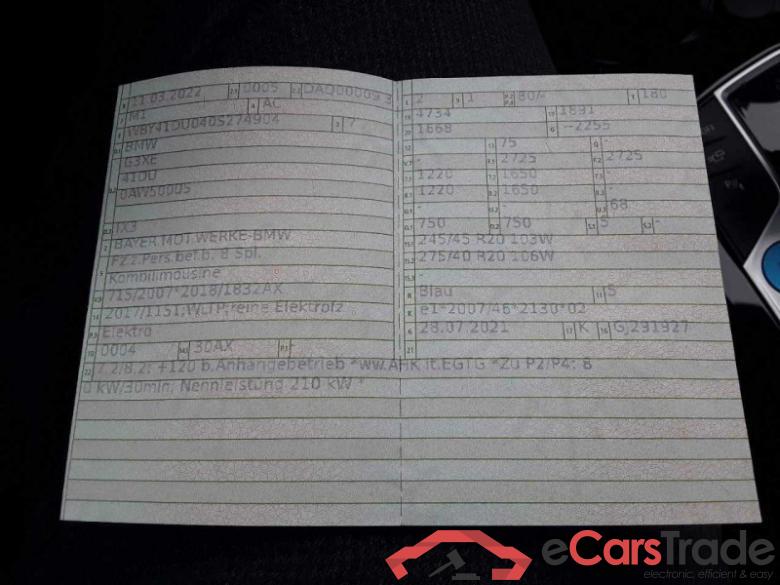 11.03.2022 0005 DAQ00009 3
M1 AC
WBY41DU040S274904 7
BMW
G3XE
41DU
0AW50005
IX3
BAYER.MOT.WERKE-BMW
FZ.z.Pers.bef.b. 8 Spl.
Kombilimousine
715/2007*2018/1832AX
2017/1151;WLTP;reine Elektrofz
Elektro
0004 30AX -
2 1 80/- 180
4734 1891
1668 --2255
- 75 -
- 2725 2725
1220 1650 -
1220 1650 -
- - 68
750 750 5 -
245/45 R20 103W
275/40 R20 106W
-
Blau 5
e1*2007/46*2130*02
28.07.2021 K GJ291927
7.2/8.2: +120 b.Anhängebetrieb *ww.AHK lt.EGTG *Zu P2/P4: 8
0 kW/30min, Nennleistung 210 kW *
eCarsTrade
electronic, efficient & easy